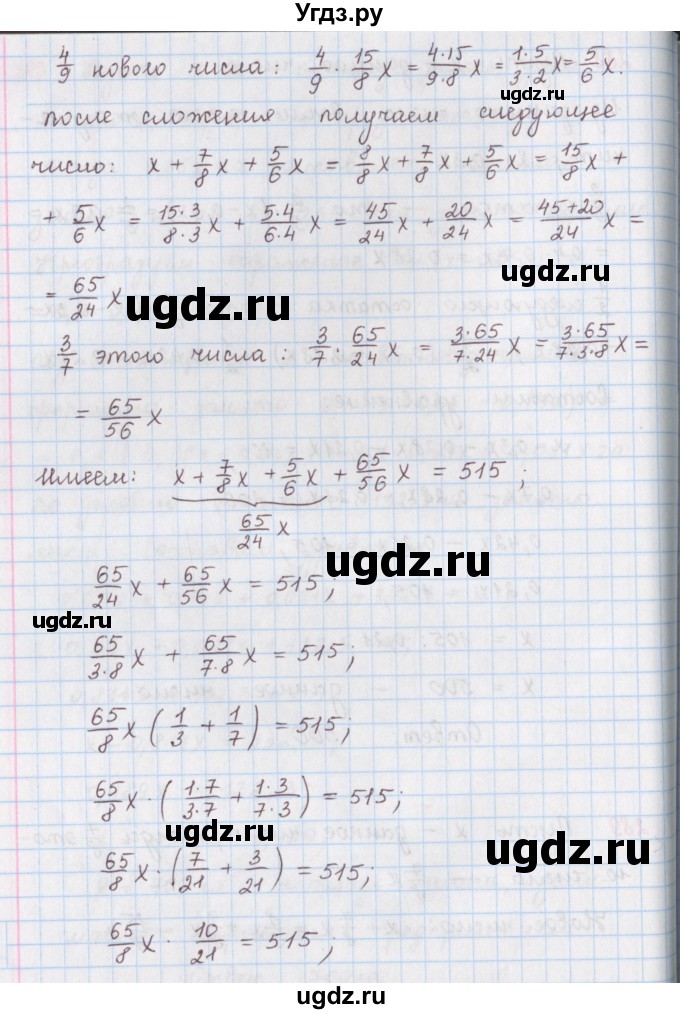 Угдз.ру
4/9 нового числа: 4/9 · 15/8 x = 4·15/9·8 x = 1·5/3·2 x = 5/6 x.
ugdz.ru
после сложения получаем следующее
число: x + 7/8 x + 5/6 x = 8/8 x + 7/8 x + 5/6 x = 15/8 x +
+ 5/6 x = 15·3/8·3 x + 5·4/6·4 x = 45/24 x + 20/24 x = 45+20/24 x =
ugdz.ru
= 65/24 x
ugdz.ru
3/7 этого числа: 3/7 · 65/24 x = 3·65/7·24 x = 3·65/7·3·8 x =
= 65/56 x
ugdz.ru
Имеем: x + 7/8 x + 5/6 x + 65/56 x = 515;
65/24 x
ugdz.ru
65/24 x + 65/56 x = 515;
ugdz.ru
65/3·8 x + 65/7·8 x = 515;
65/8 x (1/3 + 1/7) = 515;
ugdz.ru
65/8 x · (1·7/3·7 + 1·3/7·3) = 515;
ugdz.ru
65/8 x · (7/21 + 3/21) = 515;
65/8 x · 10/21 = 515;
ugdz.ru
ugdz.ru